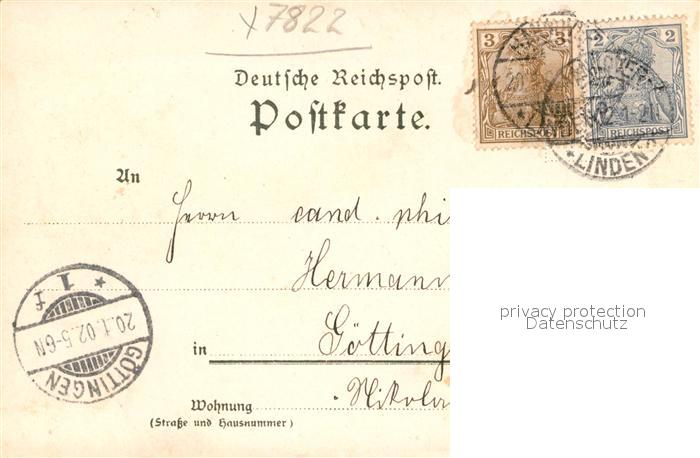 x7822
Deutsche Reichspost.
Postkarte.
3 3
REICHSPOST
2 2
REICHSPOST
LINDEN
An
Herrn cand. phi
Hermann
in Götting
Nikola
Wohnung
(Straße und Hausnummer)
1
f
20.1.02.5-6N
GÖTTINGEN
privacy protection
Datenschutz